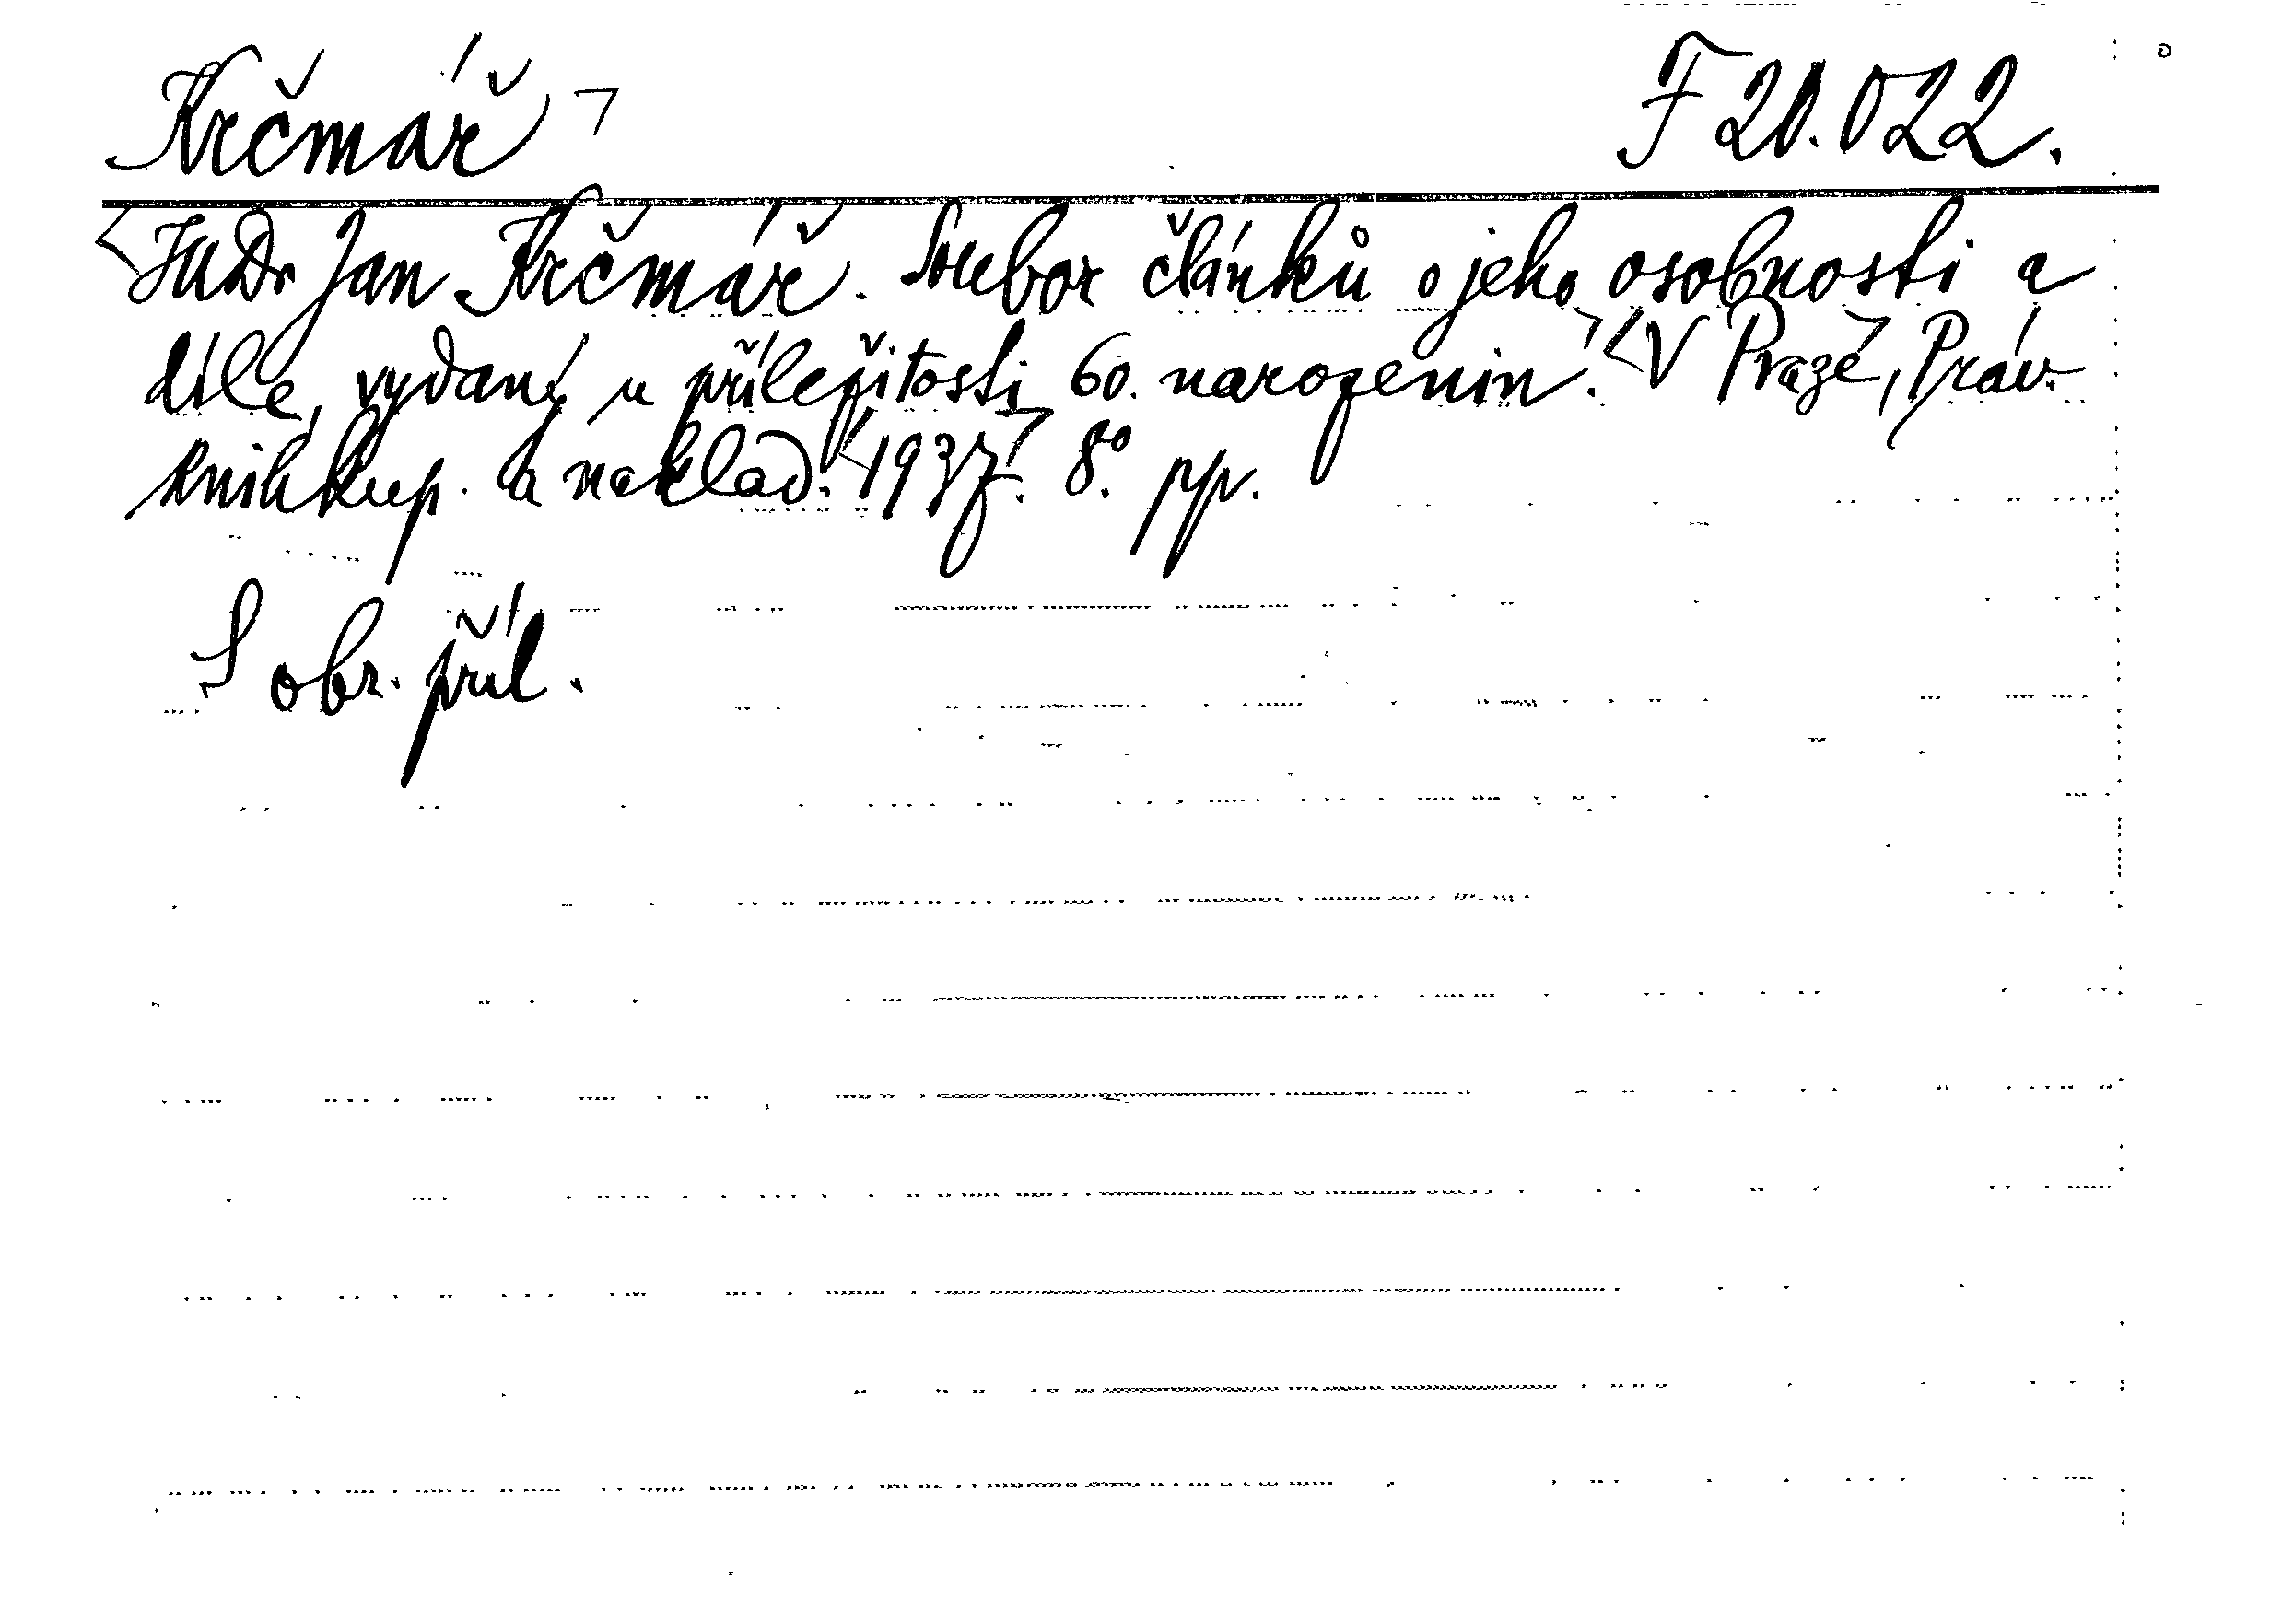 Krčmář F 20.022.
JUDr Jan Krčmář. Soubor článků o jeho osobnosti a
díle, vydaný u příležitosti 60. narozenin. V Praze, Práv.
knihkup. a naklad. 1937. 8°. pp.
S obr. příl.